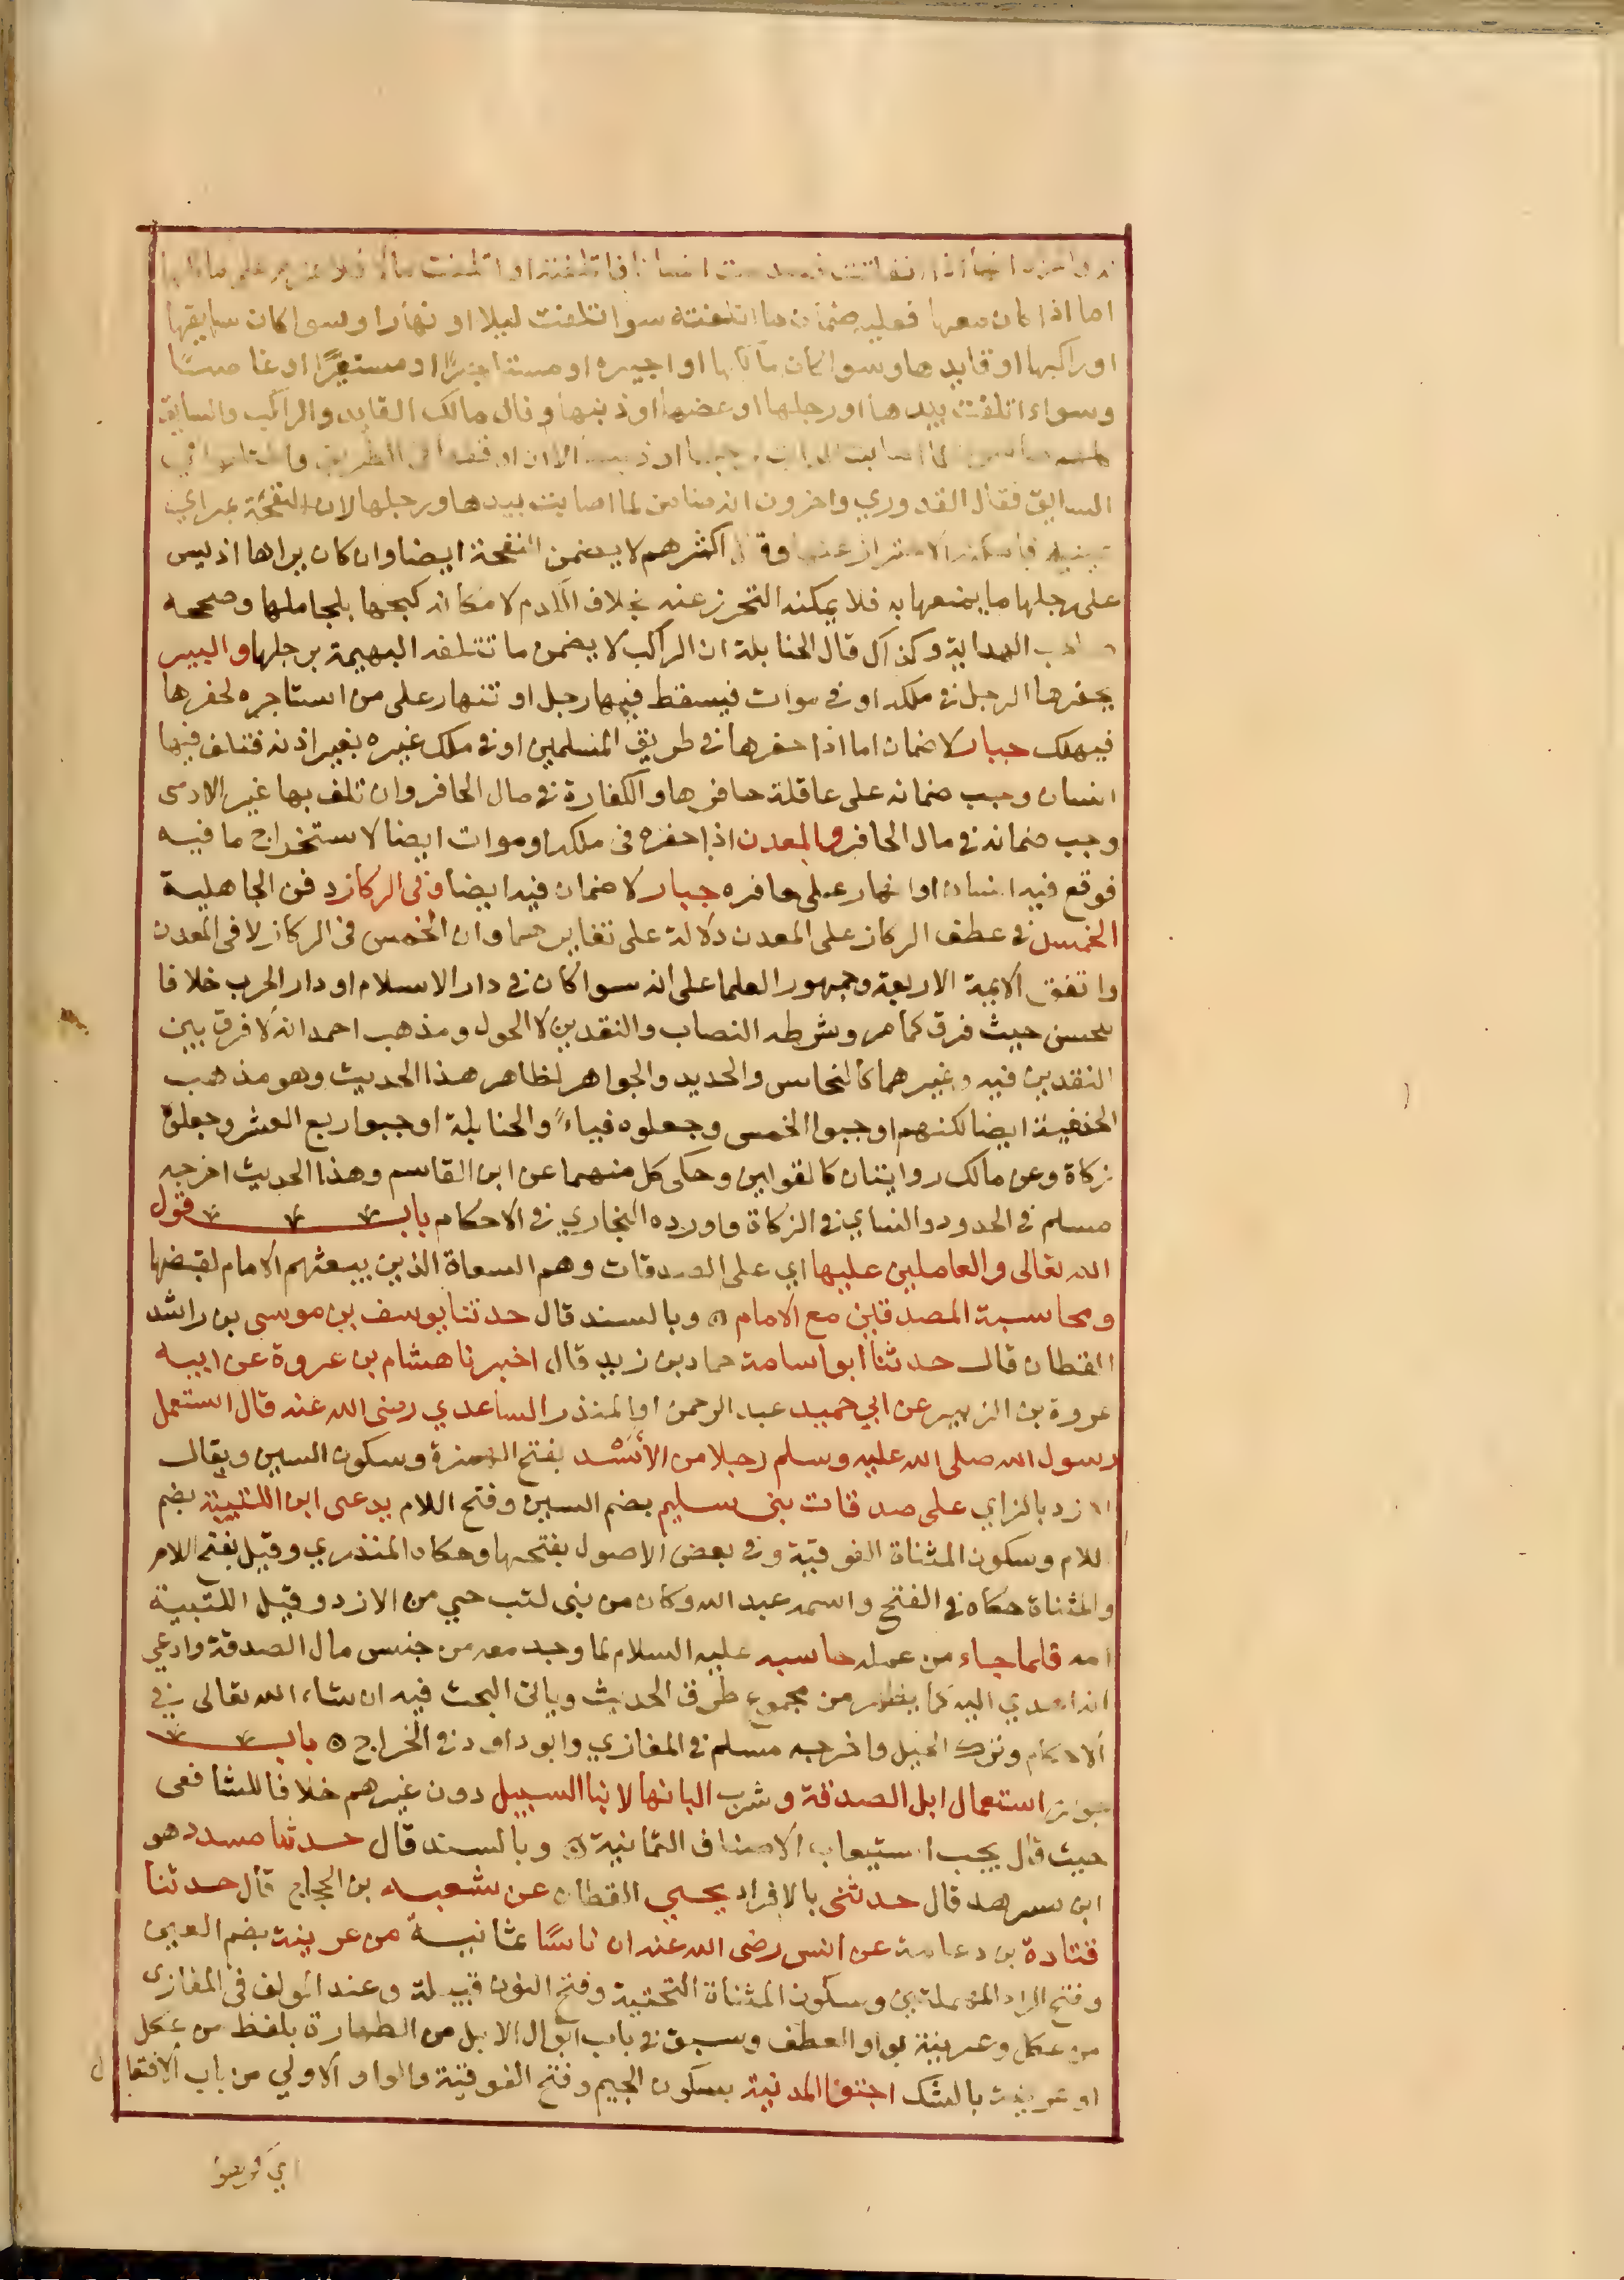 اما اذا كان معها فعليه ضمان ما اتلفته سوا اتلفت ليلا او نهارا وسوا كان سايقها
او راكبها او قايدها وسوا كان مالكها او اجيره او مستاجرًا او مستعيرًا او غاصبًا
وسواء اتلفت بيدها او رجلها او عضها او ذنبها وقال مالك القايد والراكب والسايق
السايق فقال القدوري واخرون انه ضامن لما اصابت بيدها ورجلها لان النفحة بمراي
اكثرهم لا يضمن النفحة ايضا وان كان يراها اذ ليس
على رجلها ما يمنعها به فلا يمكنه التحرز عنه بخلاف الكدم لامكانه كبحها بلجاملها وصححه
الهداية وكذا قال الحنابلة ان الراكب لا يضمن ما تتلفه البهيمة برجلها والبير
يحفرها الرجل في ملكه او في موات فيسقط فيها رجل او تنهار على من استاجره لحفرها
فيهلك جبار لا ضمان اما اذا حفرها في طريق المسلمين او في ملك غيره بغير اذنه فتلف فيها
انسان وجب ضمانه على عاقلة حافرها والكفارة في مال الحافر وان تلف بها غير الادمى
وجب ضمانه في مال الحافر والمعدن اذا حفره في ملكه او موات ايضا لاستخراج ما فيه
فوقع فيه انسان او انهار على حافره جبار لا ضمان فيه ايضا وفى الركاز دفن الجاهلية
الخمس في عطف الركاز على المعدن دلالة على تغايرهما وان الخمس فى الركاز لا فى المعدن
واتفق الايمة الاربعة وجمهور العلما على انه سوا كان في دار الاسلام او دار الحرب خلافا
للحسن حيث فرق كما مر وشرطه النصاب والنقدين لا الحول ومذهب احمد انه لا فرق بين
النقدين فيه وغيرهما كالنحاس والحديد والجواهر لظاهر هذا الحديث وهو مذهب
الحنفية ايضا لكنهم اوجبوا الخمس وجعلوه فياءً والحنابلة اوجبوا ربع العشر وجعلوه
زكاة وعن مالك روايتان كالقولين وحكى كل منهما عن ابن القاسم وهذا الحديث اخرجه
مسلم في الحدود والنساي في الزكاة واورده البخاري في الاحكام باب قول
الله تعالى والعاملين عليها اي على الصدقات وهم السعاة الذين يبعثهم الامام لقبضها
ومحاسبة المصدقين مع الامام ٥ وبالسند قال حدثنا يوسف بن موسى بن راشد
القطان قال حدثنا ابو اسامة حماد بن زيد قال اخبرنا هشام بن عروة عن ابيه
عروة بن الزبير عن ابي حميد عبد الرحمن او المنذر الساعدي رضى الله عنه قال استعمل
رسول الله صلى الله عليه وسلم رجلا من الأَسْد بفتح الهمزة وسكون السين ويقال
الازد بالزاي على صدقات بنى سليم بضم السين وفتح اللام يدعى ابن اللتبية بضم
اللام وسكون المثناة الفوقية وفي بعض الاصول بفتحها وحكاه المنذري وقيل بفتح اللام
والمثناة حكاه في الفتح واسمه عبد الله وكان من بنى لتب حي من الازد وقيل اللتبية
امه فلما جاء من عمله حاسبه عليه السلام لما وجد معه من جنس مال الصدقة وادعي
انه اهدي اليه كما يظهر من مجموع طرق الحديث وياتى البحث فيه ان شاء الله تعالى في
الاحكام وترك الحيل واخرجه مسلم في المغازي وابو داود في الخراج ٥ باب
جواز استعمال ابل الصدقة وشرب البانها لابنا السبيل دون غيرهم خلافا للشافعى
حيث قال يجب استيعاب الاصناف الثمانية ٥ وبالسند قال حدثنا مسدد هو
ابن سرهد قال حدثنى بالافراد يحيي القطان عن شعبه بن الحجاج قال حدثنا
قتادة بن دعامة عن انس رضى الله عنه ان ناسًا ثمانيةً من عرينة بضم العين
وفتح الراء المهملتين وسكون المثناة التحتية وفتح النون قبيلة وعند المولف فى المغازى
من عكل وعرينة بواو العطف وسبق في باب ابوال الابل من الطهارة بلفظ من عكل
او عرينة بالشك اجتووا المدنية بسكون الجيم وفتح الفوقية والواو الاولي من باب الافتعال